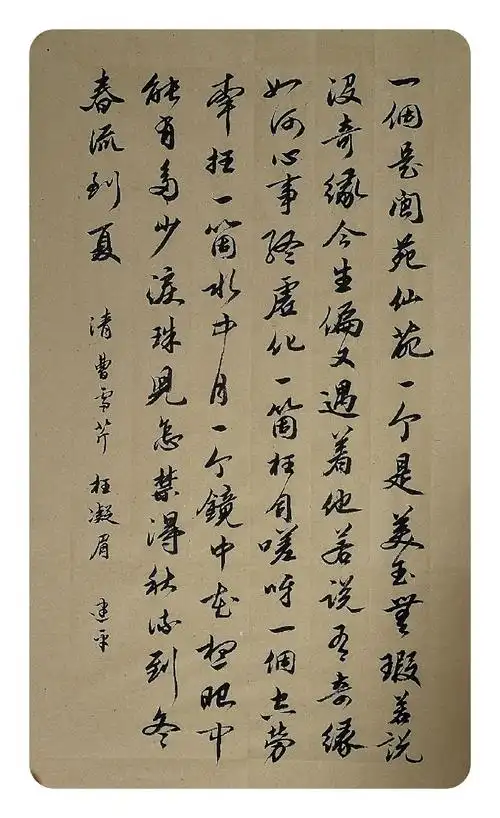 一個是閬苑仙葩一个是美玉無瑕若説
没奇緣今生偏又遇着他若説有奇緣
如何心事終虛化一箇枉自嗟呀一個空勞
牽挂一箇水中月一个鏡中花想眼中
能有多少淚珠兒怎禁得秋流到冬
春流到夏 清曹雪芹 枉凝眉 建平